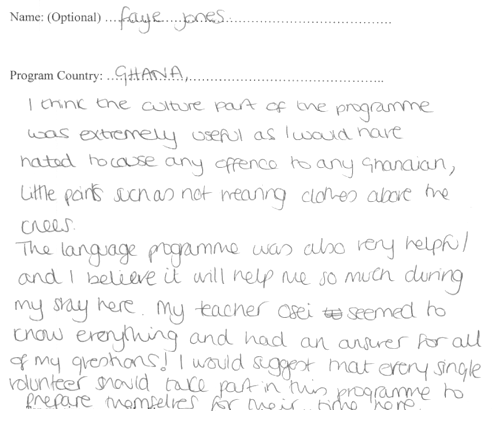 Name: (Optional) ...faye jones...
Program Country: ..GHANA,...
I think the culture part of the programme
was extremely useful as I would have
hated to cause any offence to any Ghanaian,
little parts such as not wearing clothes above the
knees.
The language programme was also very helpful
and I believe it will help me so much during
my stay here. My teacher Osei seemed to
know everything and had an answer for all
of my questions! I would suggest that every single
volunteer should take part in this programme to
prepare themselves for their time here.